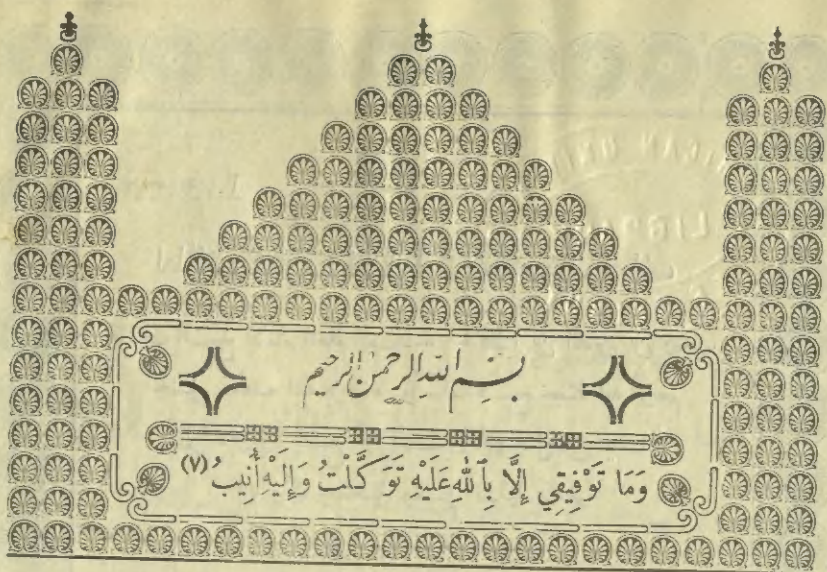 بسم الله الرحمن الرحيم
وَمَا تَوْفِيقِي إِلَّا بِٱللّٰهِ عَلَيْهِ تَوَكَّلْتُ وَإِلَيْهِ أُنِيبُ (٧)